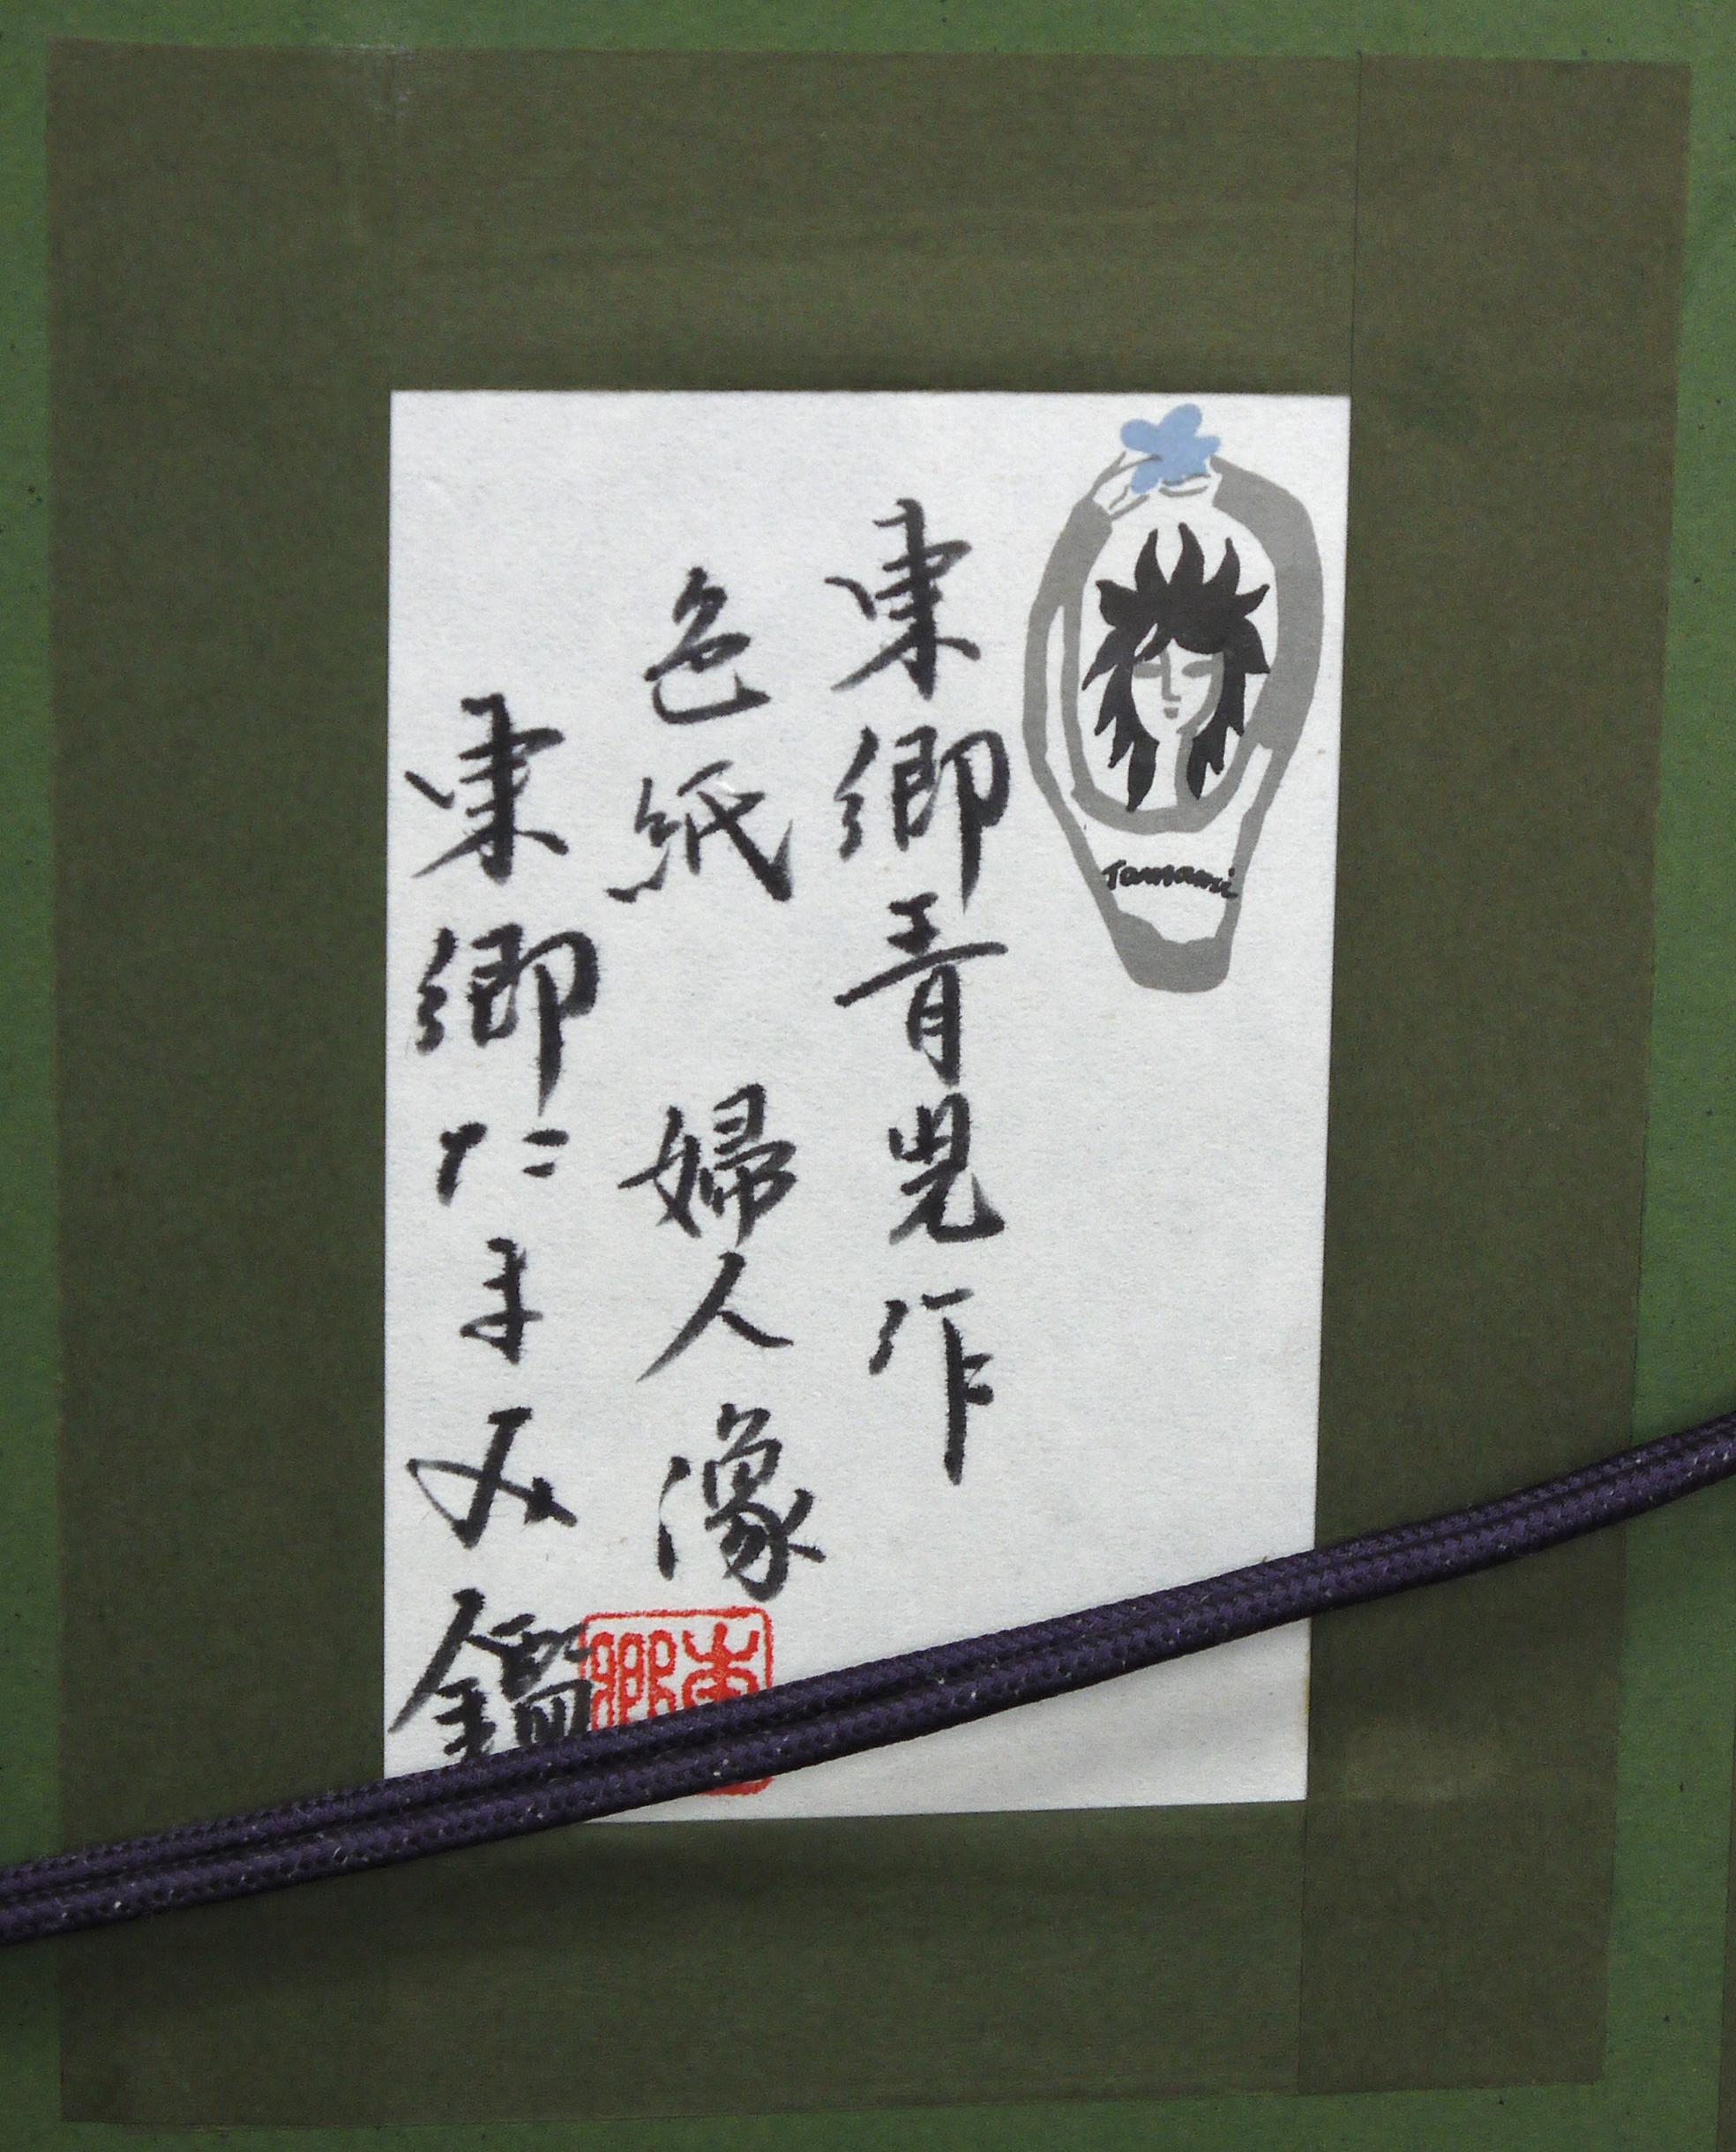 Tamami
東郷青児作
色紙 婦人像
東郷たまみ鑑
東郷